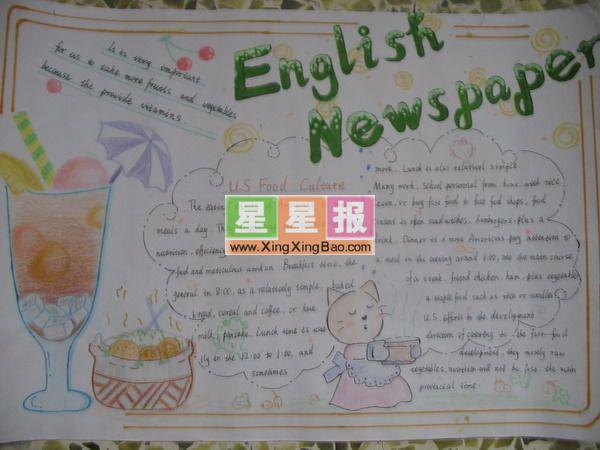 English
Newspaper
It is very important
for us to take more fruits and vegetables
because the provide vitamins.
U.S Food Culture
The eating
meals a day. Th
nutrition, efficiency
food and meticulous word on. Breakfast time, the
general in 8:00, as a relatively simple, baked
bread, cereal and coffee, or have
milk, pancake. Lunch time is usua
lly in the 12:00 to 1:00, and
sometimes
more. Lunch is also relatively simple.
Many work, school personnel from home with rice
or buy fast food to fast food shops, food
is often sandwiches, hamburgers, plus a
drink. Dinner is a more Americans pay attention to
a meal in the evening around 6:00, like the main course
of a steak, friend chicken, ham, plus vegetable
a staple food such as rice or noodles.
U.S. efforts in the development
direction of catering to the fast food
development, they merely raw
vegetables, nutrition will not be fast the main
provincial time.
星星报
www.XingXingBao.com